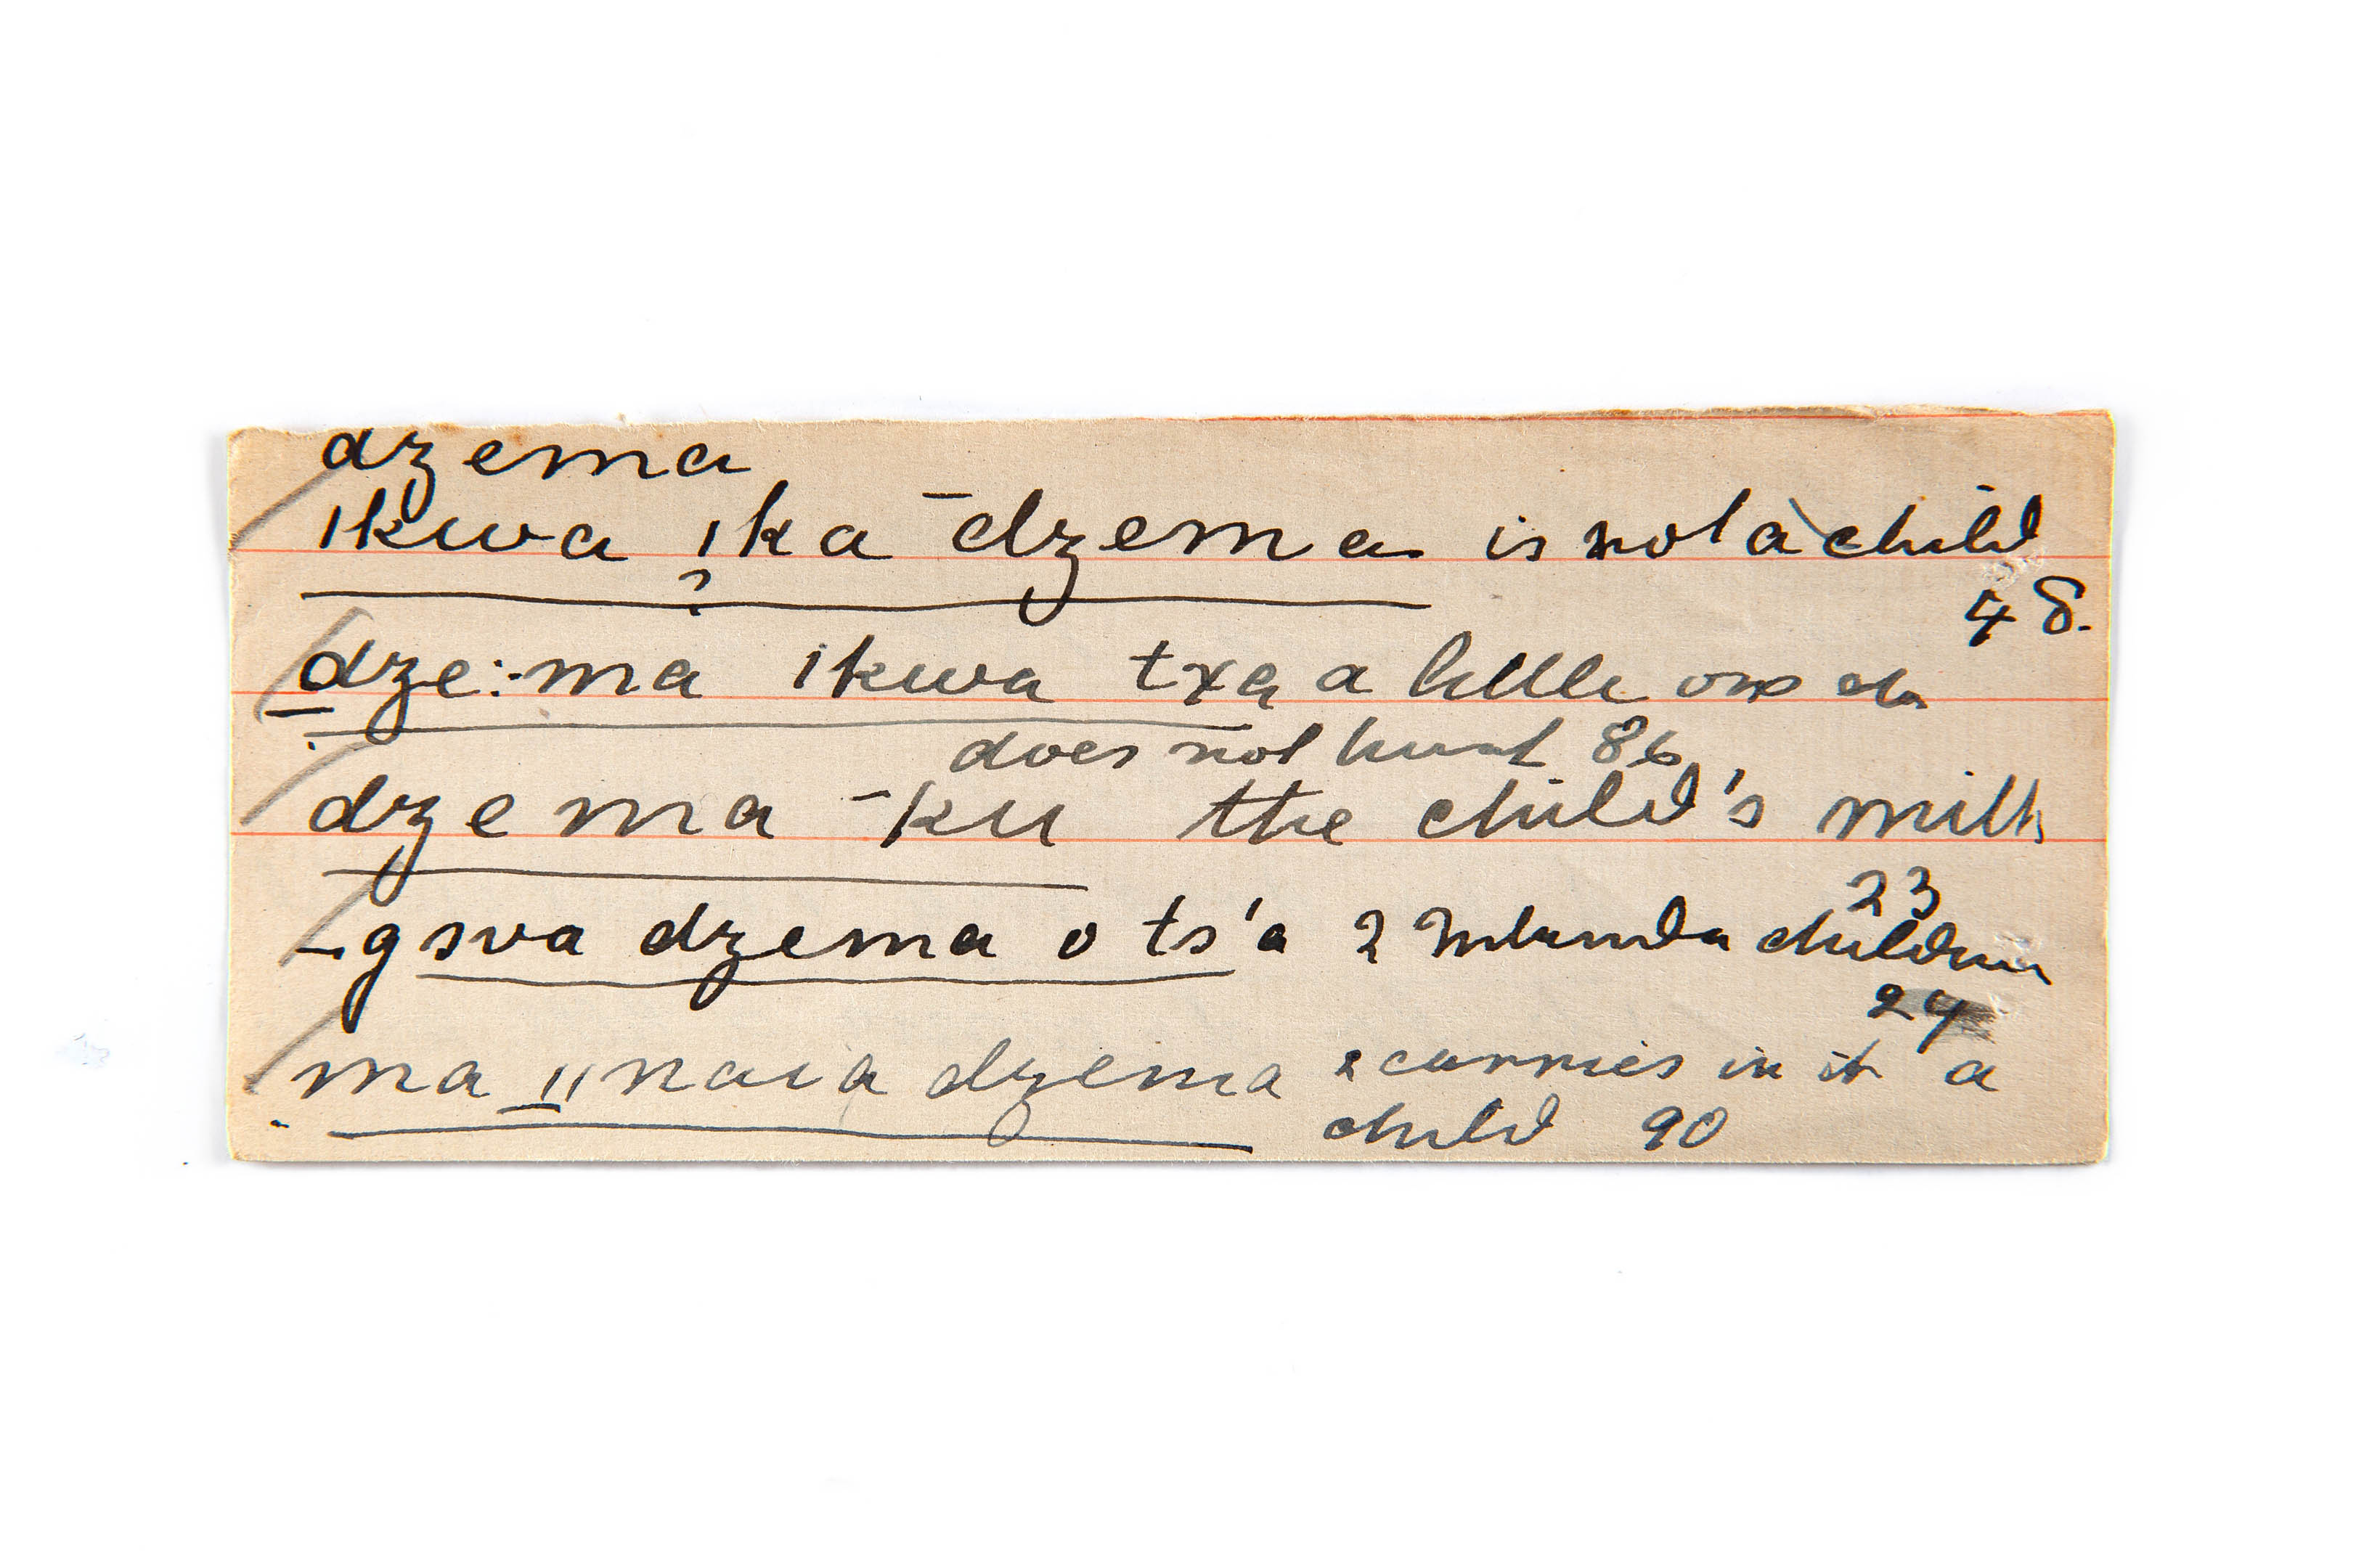 dzema
ıkwa ıka ‾dzema is not a child
?
48.
dze:ma ıkwa txa a little one
does not hunt 86
dzema ‾ku the child's milk
23
_gsva dzema o ts'a 2 children
24
ma ǁnaıa dzema & carries in it a
child 90